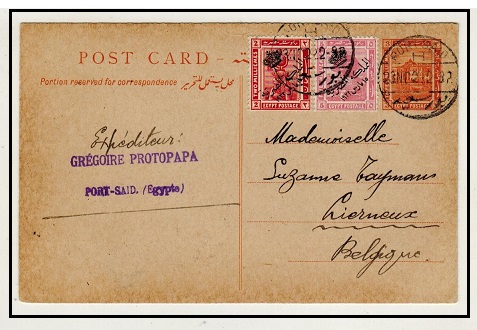 POST CARD
Portion reserved for correspondence
محل يستعمل للتحرير
EGYPT POSTAGE
EGYPT POSTAGE
EGYPT POSTAGE
Expéditeur:
GRÉGOIRE PROTOPAPA
PORT-SAID. (Egypte)
Mademoiselle
Suzanne Taymans
Lierneux
Belgique.